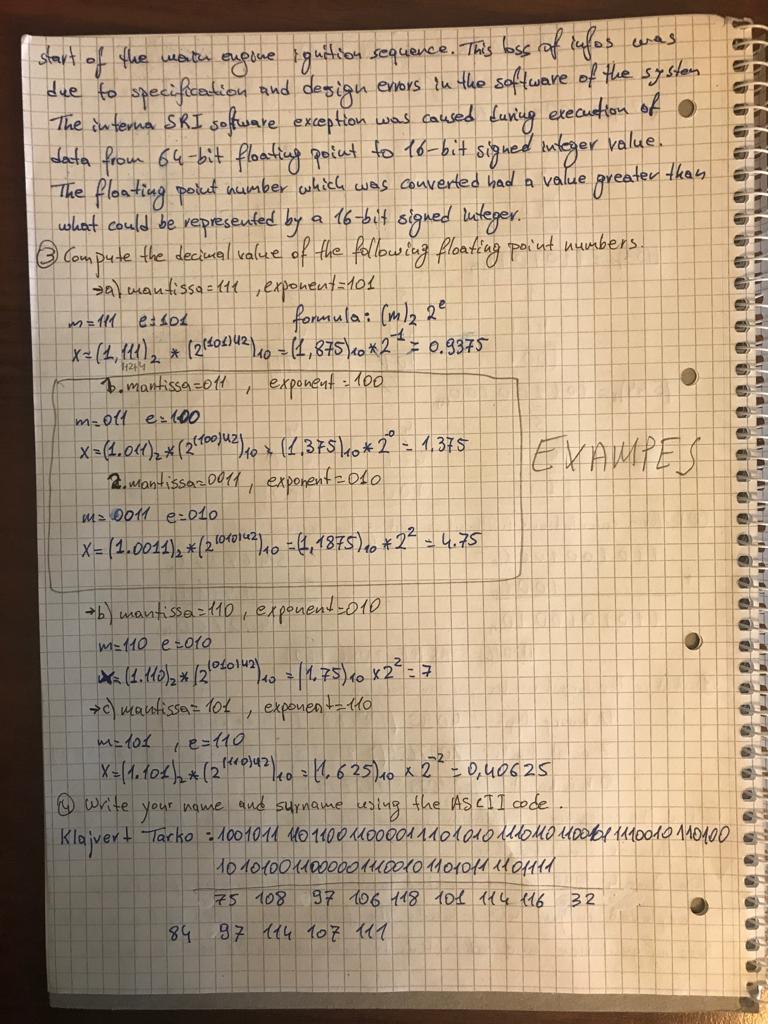 start of the main engine ignition sequence. This loss of infos was
due to specification and design errors in the software of the system
The interna SRI software exception was caused during execution of
data from 64-bit floating point to 16-bit signed integer value.
The floating point number which was converted had a value greater than
what could be represented by a 16-bit signed integer.
③ Compute the decimal value of the following floating point numbers.
→a) mantissa=111 , exponent=101
m=111 e=101 formula: (m)₂ 2^e
X=(1,111)₂ * (2^(101)42)₁₀ =(1,875)₁₀*2^-1 = 0.9375
1. mantissa=011 , exponent=100
m=011 e=100
X=(1.011)₂*(2^(100)42)₁₀ * (1.375)₁₀*2^-0 = 1.375
EXAMPES
2. mantissa=0011 , exponent=010
m=0011 e=010
X=(1.0011)₂*(2^(010)42)₁₀=(1,1875)₁₀*2^2 = 4.75
→b) mantissa=110 , exponent=010
m=110 e=010
X=(1.110)₂*(2^(010)42)₁₀ =(1.75)₁₀ x2^2=7
→c) mantissa=101 , exponent=110
m=101 , e=110
X=(1.101)₂*(2^(110)42)₁₀=(1.625)₁₀ x 2^-2 =0,40625
④ Write your name and surname using the ASCII code.
Klajvert Tarko :
75 108 97 106 118 101 114 116 32
84 97 114 107 111